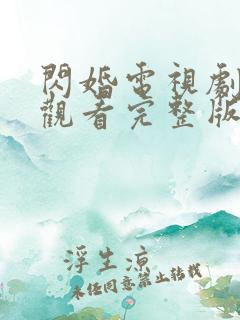 閃婚電視劇
觀看完整版
浮生涼
未經同意禁止轉載